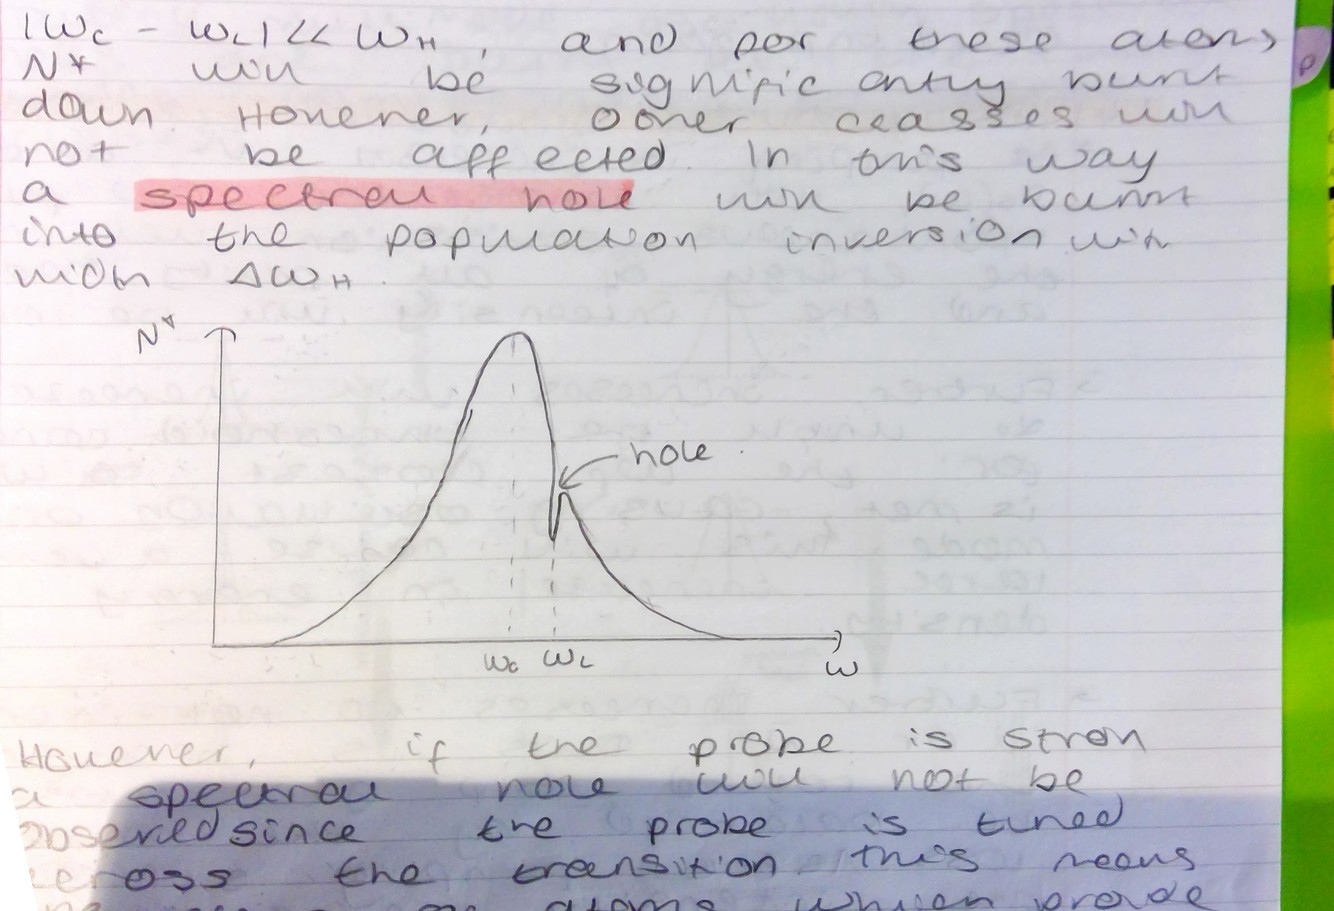 |ωc - ωL| << ωH, and for these atoms
N* will be significantly burnt
down. However, other classes will
not be affected. In this way
a spectral hole will be burnt
into the population inversion with
width ΔωH.
N*
hole
ωc ωL
ω
However, if the probe is stron
a spectral hole will not be
observed since the probe is tuned
across the transition this means
atoms which provide